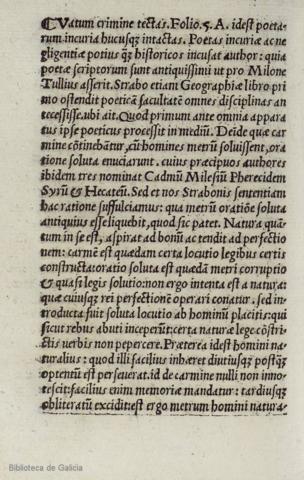 CVatum crimine tectas. Folio. 5. A. idest poeta-
rum incuria hucusq; intactas. Poetas incuriæ ac ne
gligentiæ potius q̃ historicos incusat author: quia
poetæ scriptorum sunt antiquissimi ut pro Milone
Tullius asserit. Strabo etiam Geographiæ libro pri
mo ostendit poeticã facultatẽ omnes disciplinas an
tecessisse. ubi ait. Quod primum ante omnia appara
tus ipse poeticus processit in mediũ. Deinde quæ car
mine cõtinẽbãtur, cũ homines metrũ soluissent, ora
tione soluta enuciarunt. cuius præcipuos authores
ibidem tres nominat Cadmũ Milesiũ Pherecidem
Syrũ & Hecateũ. Sed et nos Strabonis sententiam
hac ratione suffulciamus: qua metrũ oratiõe soluta
antiquius esse liquebit, quod sic patet. Natura quan
tum in se est, aspirat ad bonũ ac tendit ad perfectio
nem: carmẽ est quædam certa locutio legibus certis
constructa: oratio soluta est quædã metri corruptio
& quasi legis solutio: non ergo intenta est a natura:
quæ cuiusq; rei perfectionẽ operari conatur. sed in-
troducta fuit soluta locutio ab hominũ placitis: qui
sicut rebus abuti inceperũt: certa naturæ lege cõstri-
ctis verbis non pepercere. Præterea idest homini na-
turalius: quod illi facilius inhæret diutiusq; postq̃
optentũ est perseuerat. id de carmine nulli non inno-
tescit: facilius enim memoriæ mandatur: tardiusq;
obliteratũ excidit: est ergo metrum homini natura-
Biblioteca de Galicia